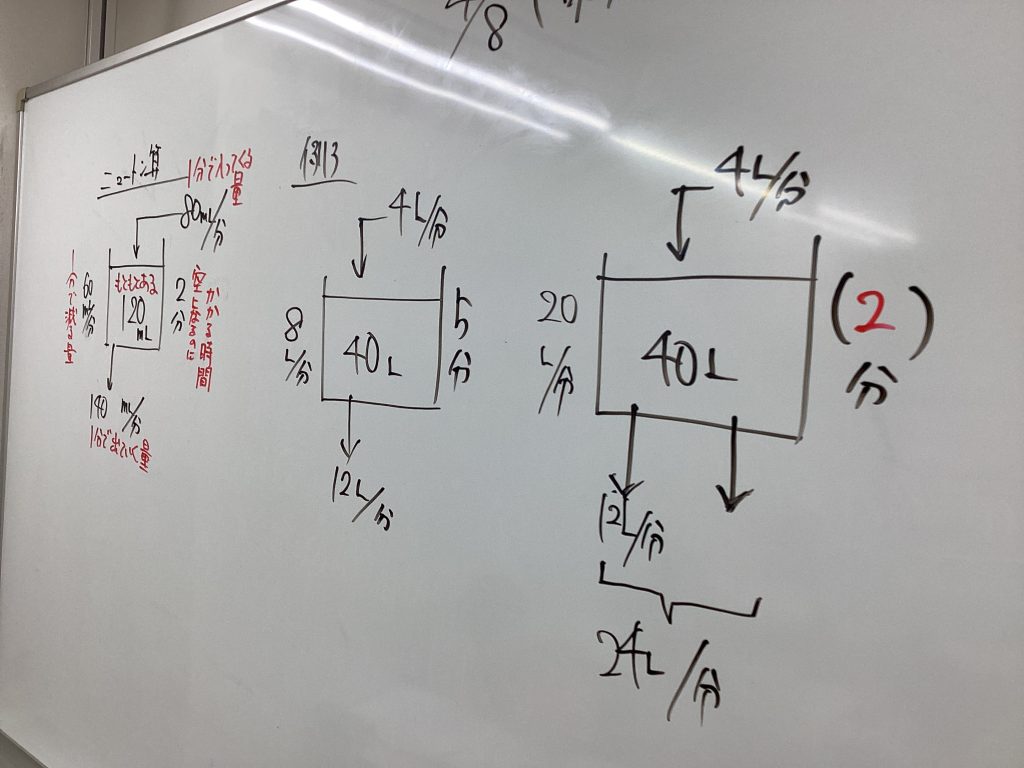 4/8
ニュートン算
1分で入ってくる
量
80mL/分
もともとある
120
mL
1分で減る量
60
mL/分
2
分
空になるのに
かかる時間
140 mL/分
1分で出ていく量
例3
4L/分
8
L/分
40L
5
分
12L/分
4L/分
20
L/分
40L
(2)
分
12L/分
24L/分